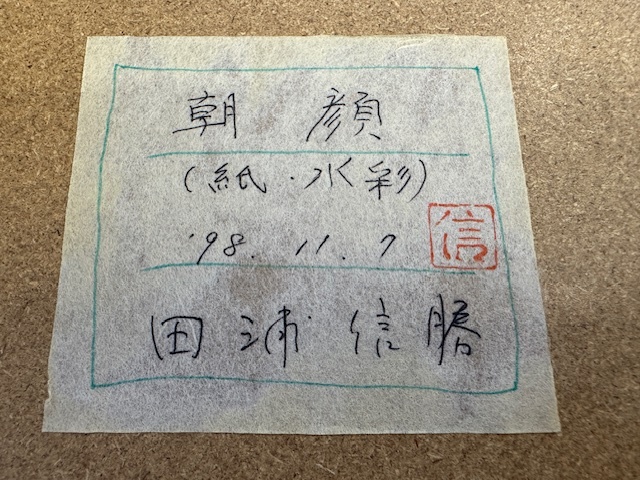 朝 顔
(紙・水彩)
'98. 11. 7
信
田浦信勝